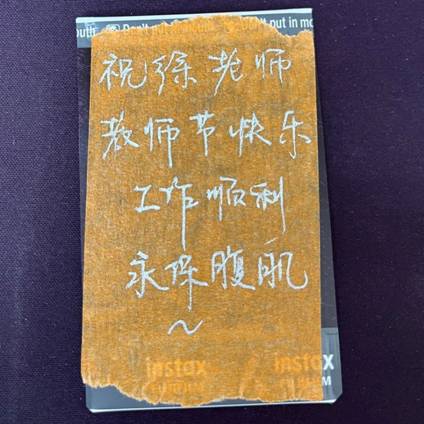 outh Don't put in mo
祝徐老师
教师节快乐
工作顺利
永保腹肌
~
instax instax
FUJIFILM